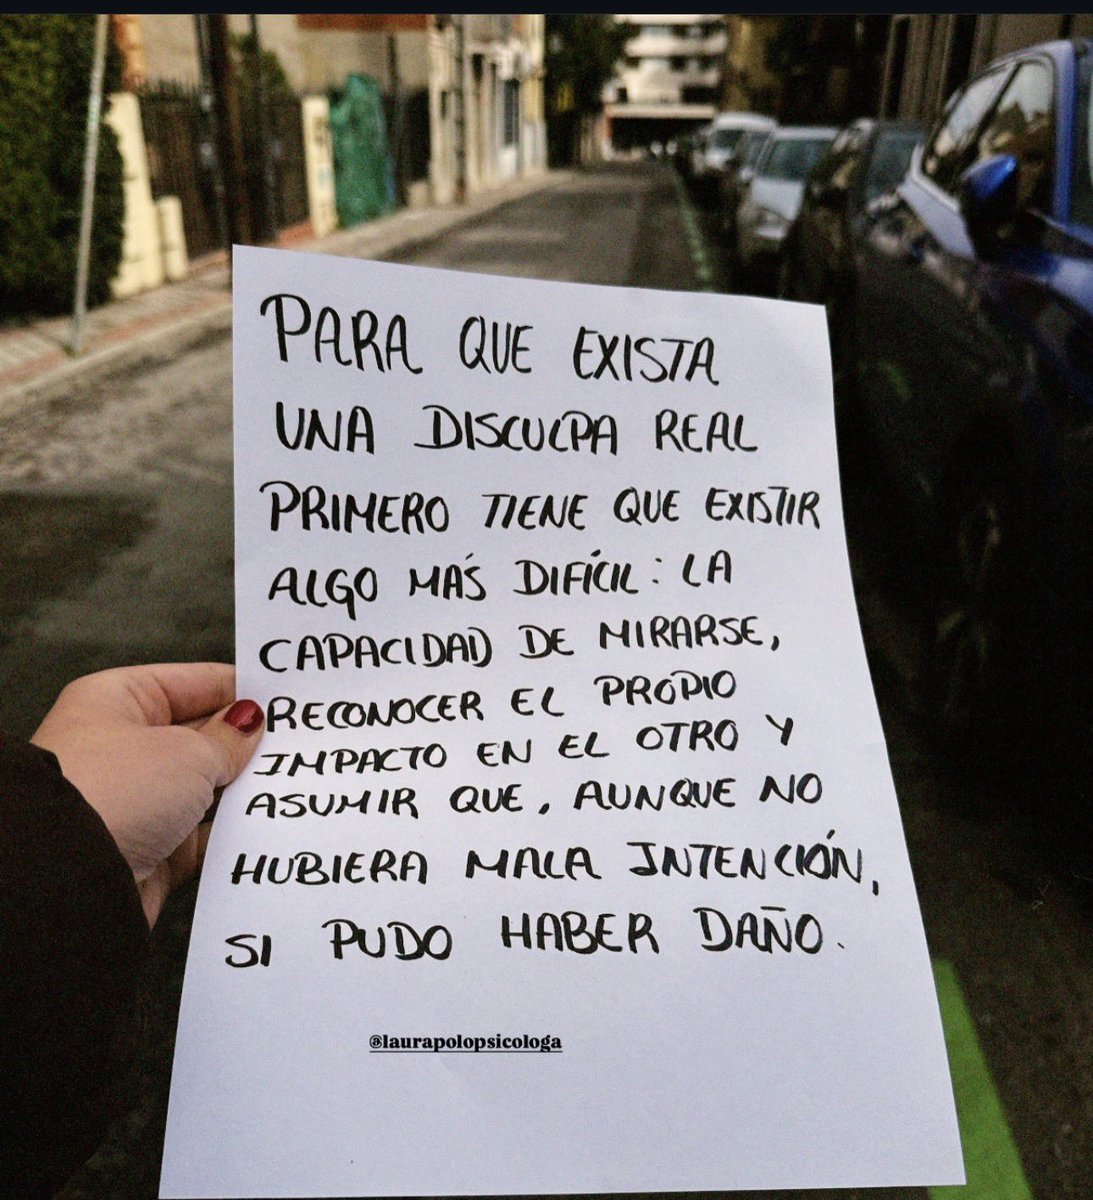 PARA QUE EXISTA
UNA DISCULPA REAL
PRIMERO TIENE QUE EXISTIR
ALGO MÁS DIFÍCIL: LA
CAPACIDAD DE MIRARSE,
RECONOCER EL PROPIO
IMPACTO EN EL OTRO Y
ASUMIR QUE, AUNQUE NO
HUBIERA MALA INTENCIÓN,
SI PUDO HABER DAÑO.
@laurapolopsicologa